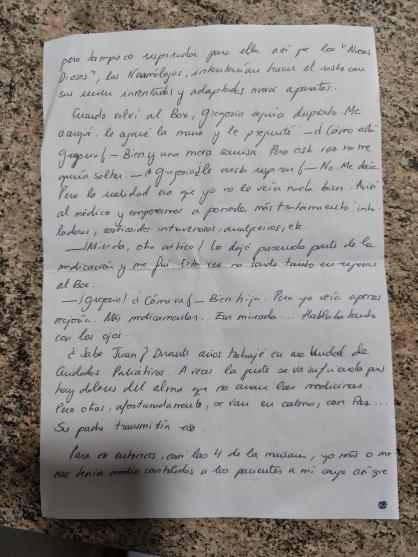 pero tampoco respirador para ella así pe los "Nuevos
Dioses", los Neumólogos, intentarían hacer el resto con
sus recien inventados y adaptados nuevos aparatos.
Cuando volví al Box, Gregorio seguía despierto. Me
acerqué, le agarré la mano y le pregunté: - ¿Cómo está
Gregorio? - Bien y una mera sonrisa. Pero esta vez no me
quería soltar. - ¿Gregorio le cuesta respirar? - No. Me decía.
Pero la realidad era que yo no lo veía nada bien. Avisé
al médico y empezamos a ponerle más tratamiento: inha-
ladores, corticoides intravenosos, analgésicos, etc.
- ¡Mierda, otro crítico! Lo dejé pasando parte de la
medicación y me fui. Esta vez no tardé tanto en regresar
al Box...
- ¡Gregorio! ¿Cómo va? - Bien hija. Pero yo veía apenas
mejoría. Más medicamentos... Esa mirada... Hablaba tanto
con los ojos...
¿Sabe Juan? Durante años trabajé en una Unidad de
Cuidados Paliativos. A veces la gente se va sufriendo pues
hay dolores del alma que no curan las medicinas.
Pero otros, afortunadamente, se van en calma, con Paz...
Su padre transmitía eso...
Para en entonces, casi las 4 de la mañana, yo más o me
nos tenía medio controlados a los pacientes a mi cargo así que